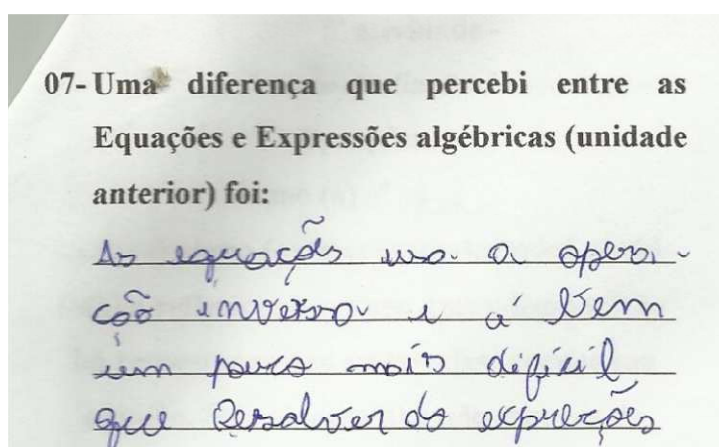 07- Uma diferença que percebi entre as
Equações e Expressões algébricas (unidade
anterior) foi:
As equações usa a opera-
ção inversa e é bem
um pouco mais difícil
que Resolver do expreções